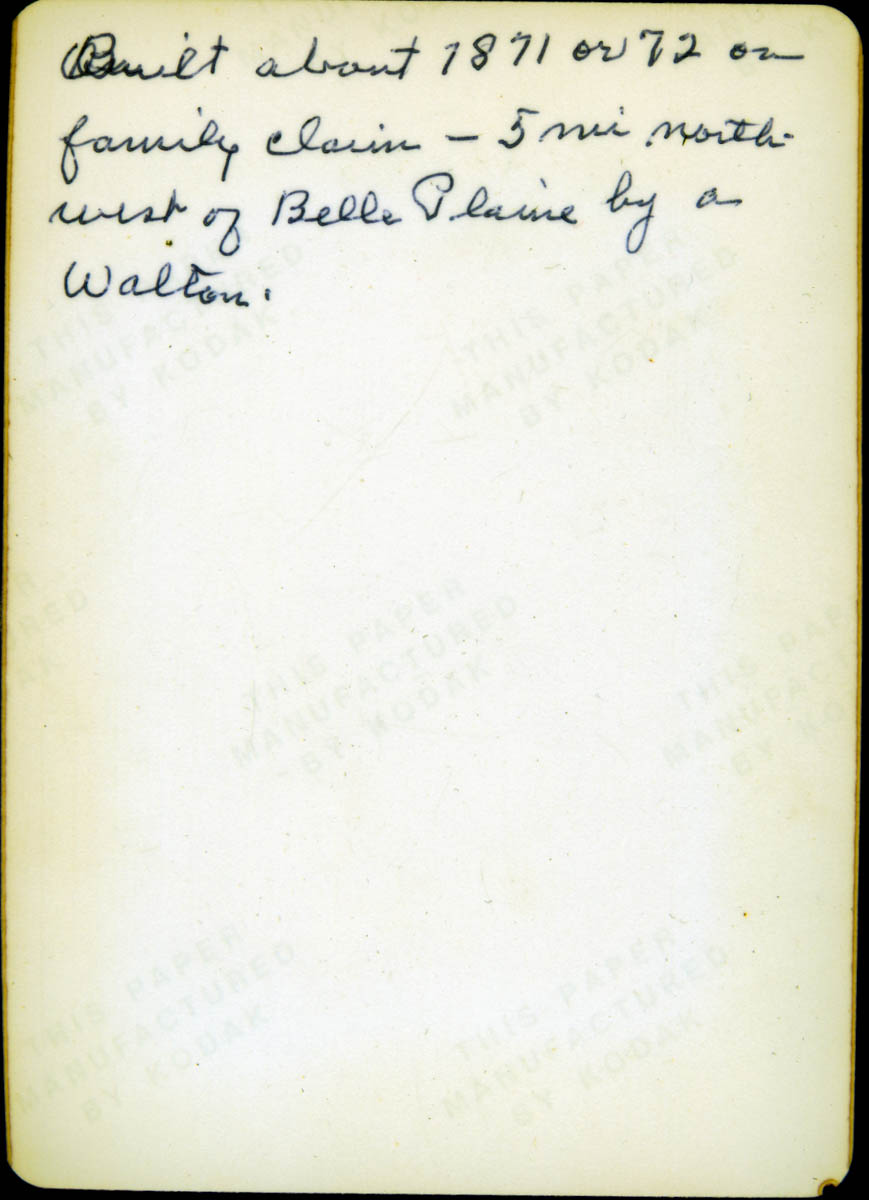 Built about 1871 or 72 on
family claim – 5 mi north-
west of Belle Plaine by a
Walton.
THIS PAPER
MANUFACTURED
BY KODAK
THIS PAPER
MANUFACTURED
BY KODAK
THIS PAPER
MANUFACTURED
BY KODAK
THIS PAPER
MANUFACTURED
BY KODAK
THIS PAPER
MANUFACTURED
BY KODAK